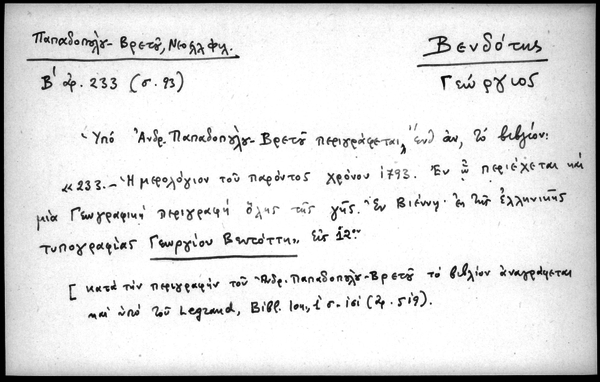 Παπαδοπούλου-Βρετοῦ, Νεοελλ. Φιλ.
Βενδότης
Β' ἀρ. 233 (σ. 93)
Γεώργιος
Ὑπό Ἀνδρ. Παπαδοπούλου-Βρετοῦ περιγράφεται, τό βιβλίον:
«233.- Ἡμερολόγιον τοῦ παρόντος χρόνου 1793. Ἐν ᾧ περιέχεται καί
μία Γεωγραφική περιγραφή ὅλης τῆς γῆς. Ἐν Βιέννῃ. Ἐκ τῆς ἑλληνικῆς
τυπογραφίας Γεωργίου Βεντόττη», Εἰς 12ον
[κατά τήν περιγραφήν τοῦ Ἀνδρ. Παπαδοπούλου-Βρετοῦ τό βιβλίον ἀναγράφεται
καί ὑπό τοῦ Legrand, Bibl. Ion., σ. (ἀρ. 519).